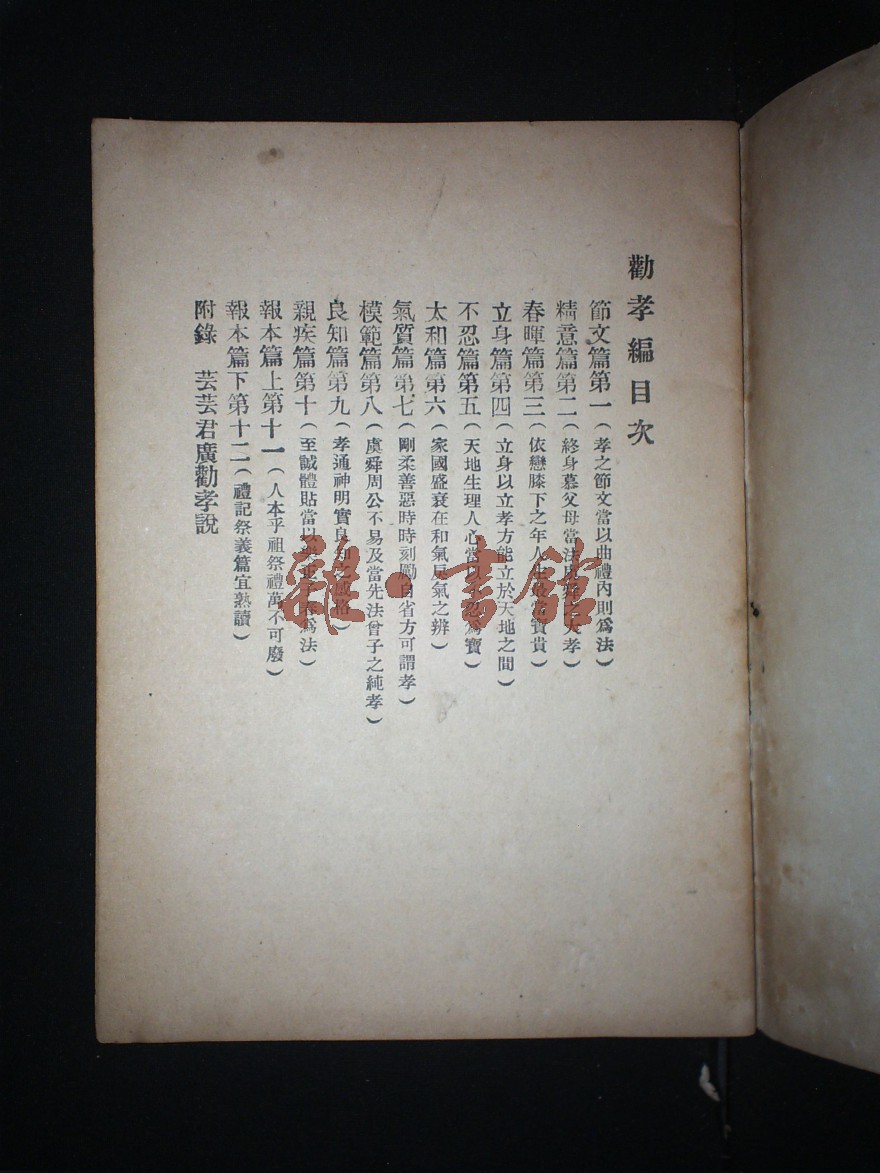 勸孝編目次
節文篇第一（孝之節文當以曲禮內則爲法）
精意篇第二（終身慕父母當法虞舜之大孝）
春暉篇第三（依戀膝下之年人生最當寶貴）
立身篇第四（立身以立孝方能立於天地之間）
不忍篇第五（天地生理人心當以不忍爲寶）
太和篇第六（家國盛衰在和氣戾氣之辨）
氣質篇第七（剛柔善惡時時刻勵自省方可謂孝）
模範篇第八（虞舜周公不易及當先法曾子之純孝）
良知篇第九（孝通神明實良知之感格）
親疾篇第十（至誠體貼當以樂正子春爲法）
報本篇上第十一（人本乎祖祭禮萬不可廢）
報本篇下第十二（禮記祭義篇宜熟讀）
附錄　芸芸君廣勸孝說
雜·書館